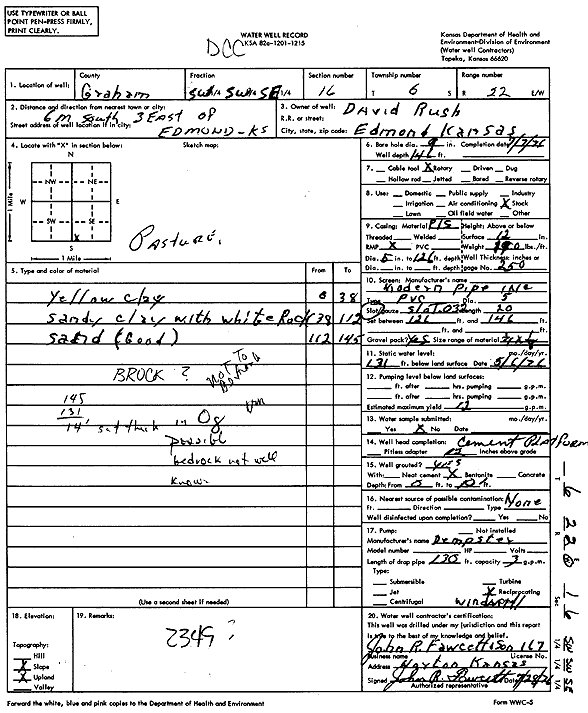 USE TYPEWRITER OR BALL
POINT PEN-PRESS FIRMLY,
PRINT CLEARLY.
WATER WELL RECORD
KSA 82a-1201-1215
DCC
Kansas Department of Health and
Environment-Division of Environment
(Water well Contractors)
Topeka, Kansas 66620
1. Location of well:
County
Graham
Fraction
SW 1/4 SW 1/4 SE 1/4
Section number
16
Township number
T 6 S
Range number
R 22 E/W
2. Distance and direction from nearest town or city:
6 M south 3 EAST OF
Street address of well location if in city:
EDMOND-KS
3. Owner of well: DAVID Rush
R.R. or street:
City, state, zip code: Edmond Kansas
4. Locate with "X" in section below:
Sketch map:
N
NW NE
W E
SW SE
X
S
1 Mile
1 Mile
PASTURE.
6. Bore hole dia. 9 in. Completion date
Well depth 146 ft.
7. Cable tool X Rotary Driven Dug
Hollow rod Jetted Bored Reverse rotary
8. Use: Domestic Public supply Industry
Irrigation Air conditioning X Stock
Lawn Oil field water Other
9. Casing: Material Height: Above or below
Threaded Welded Surface 12 in.
RMP X PVC Weight lbs./ft.
Dia. 5 in. to 126 ft. depth Wall Thickness: inches or
Dia. in. to ft. depth gage No. 250
5. Type and color of material
From To
Yellow clay 0 38
Sandy clay with white Rock 38 112
Sand (Good) 112 145
BROCK ?
NOT TO
145
131
14' sat thick in Og
possible
bedrock not well
known
10. Screen: Manufacturer's name
Modern Pipe
Type PVC Dia. 5
Slot/gauze SLOT .032 Length 20
Set between 126 ft. and 146 ft.
ft. and ft.
Gravel pack? yes Size range of material
11. Static water level: mo./day/yr.
131 ft. below land surface Date 5/6/76
12. Pumping level below land surfaces:
ft. after hrs. pumping g.p.m.
ft. after hrs. pumping g.p.m.
Estimated maximum yield 12 g.p.m.
13. Water sample submitted: mo./day/yr.
Yes X No Date
14. Well head completion: Cement Platform
Pitless adapter 12 Inches above grade
15. Well grouted? yes
With: Neat cement X Bentonite Concrete
Depth: From 0 ft. to 10 ft.
16. Nearest source of possible contamination: None
ft. Direction Type
Well disinfected upon completion? Yes No
17. Pump: Not installed
Manufacturer's name Dempster
Model number HP Volts
Length of drop pipe 135 ft. capacity 3 g.p.m.
Type:
Submersible Turbine
Jet X Reciprocating
Centrifugal windmill
(Use a second sheet if needed)
18. Elevation:
Topography:
Hill
X Slope
X Upland
Valley
19. Remarks:
2349?
20. Water well contractor's certification:
This well was drilled under my jurisdiction and this report
is true to the best of my knowledge and belief.
John R. Fawcett & Son 167
Business name License No.
Address Norton Kansas
Signed John R. Fawcett Date 7/28/76
Authorized representative
T 6
R 22 W
Sec 16
SW 1/4 SW 1/4 SE 1/4
Forward the white, blue and pink copies to the Department of Health and Environment
Form WWC-5